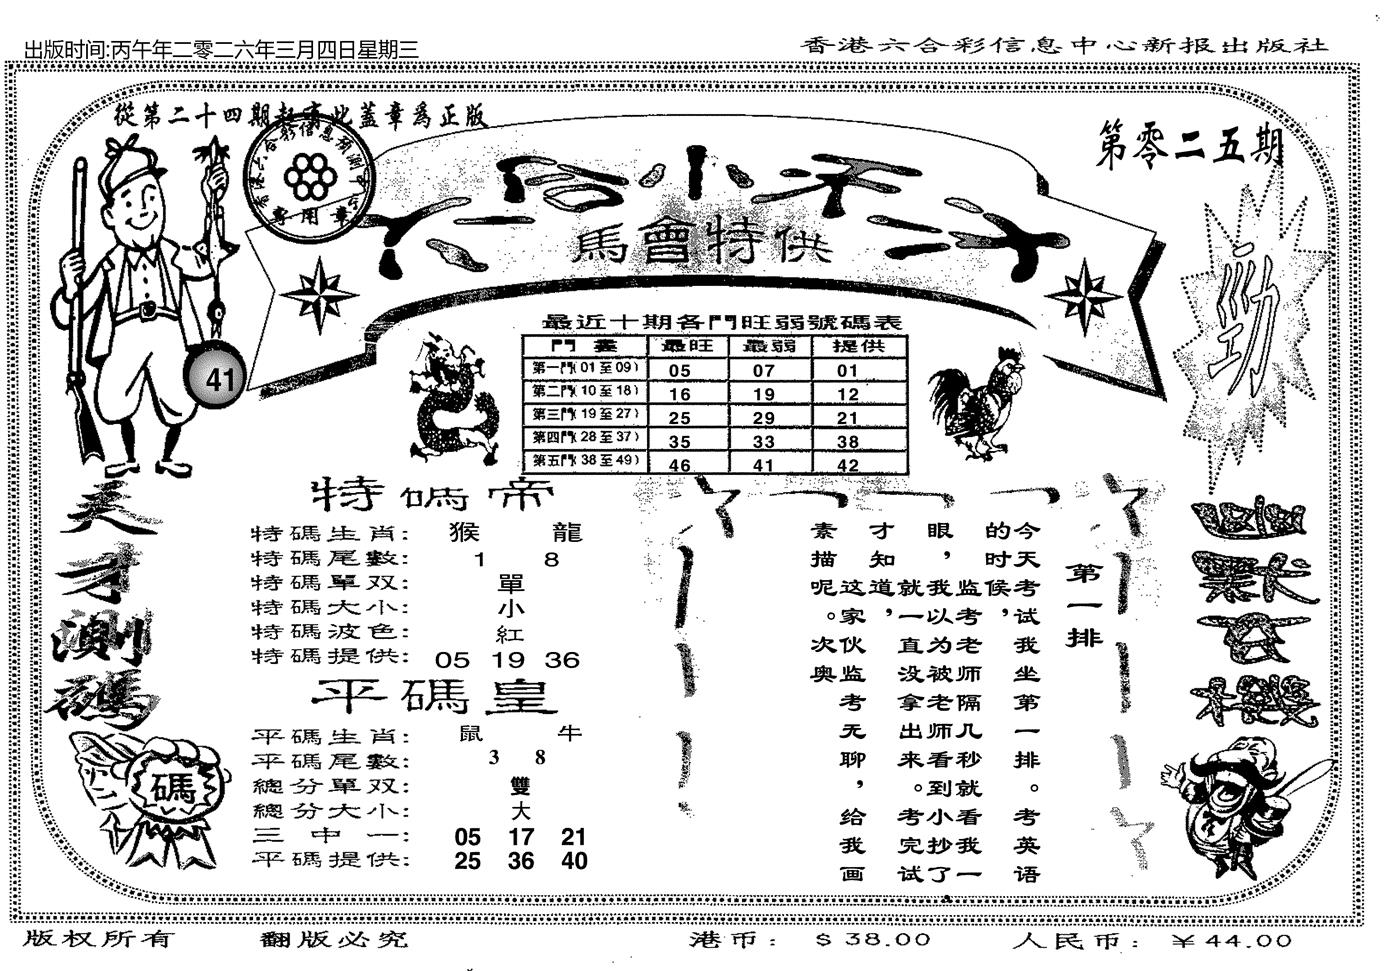 出版时间:丙午年二零二六年三月四日星期三
香港六合彩信息中心新报出版社
從第二十四期起有此蓋章為正版
第零二五期
專用章
六合小子
馬會特供
勁
41
最近十期各門旺弱號碼表
門 最旺 最弱 提供
第一門(01至09) 05 07 01
第二門(10至18) 16 19 12
第三門(19至27) 25 29 21
第四門(28至37) 35 33 38
第五門(38至49) 46 41 42
天才測碼
碼
特碼帝
特碼生肖: 猴 龍
特碼尾數: 1 8
特碼單双: 單
特碼大小: 小
特碼波色: 紅
特碼提供: 05 19 36
平碼皇
平碼生肖: 鼠 牛
平碼尾數: 3 8
總分單双: 雙
總分大小: 大
三中一: 05 17 21
平碼提供: 25 36 40
第一排
今天考试我坐第一排。考英语
的时候,监考老师隔几秒就看我一
眼,我以为被老师看到小抄了
就一直没拿出来。考完试
才知道,这家伙监考无聊,给我画
素描呢。次奥
版权所有
翻版必究
港币: $38.00
人民币: ¥44.00